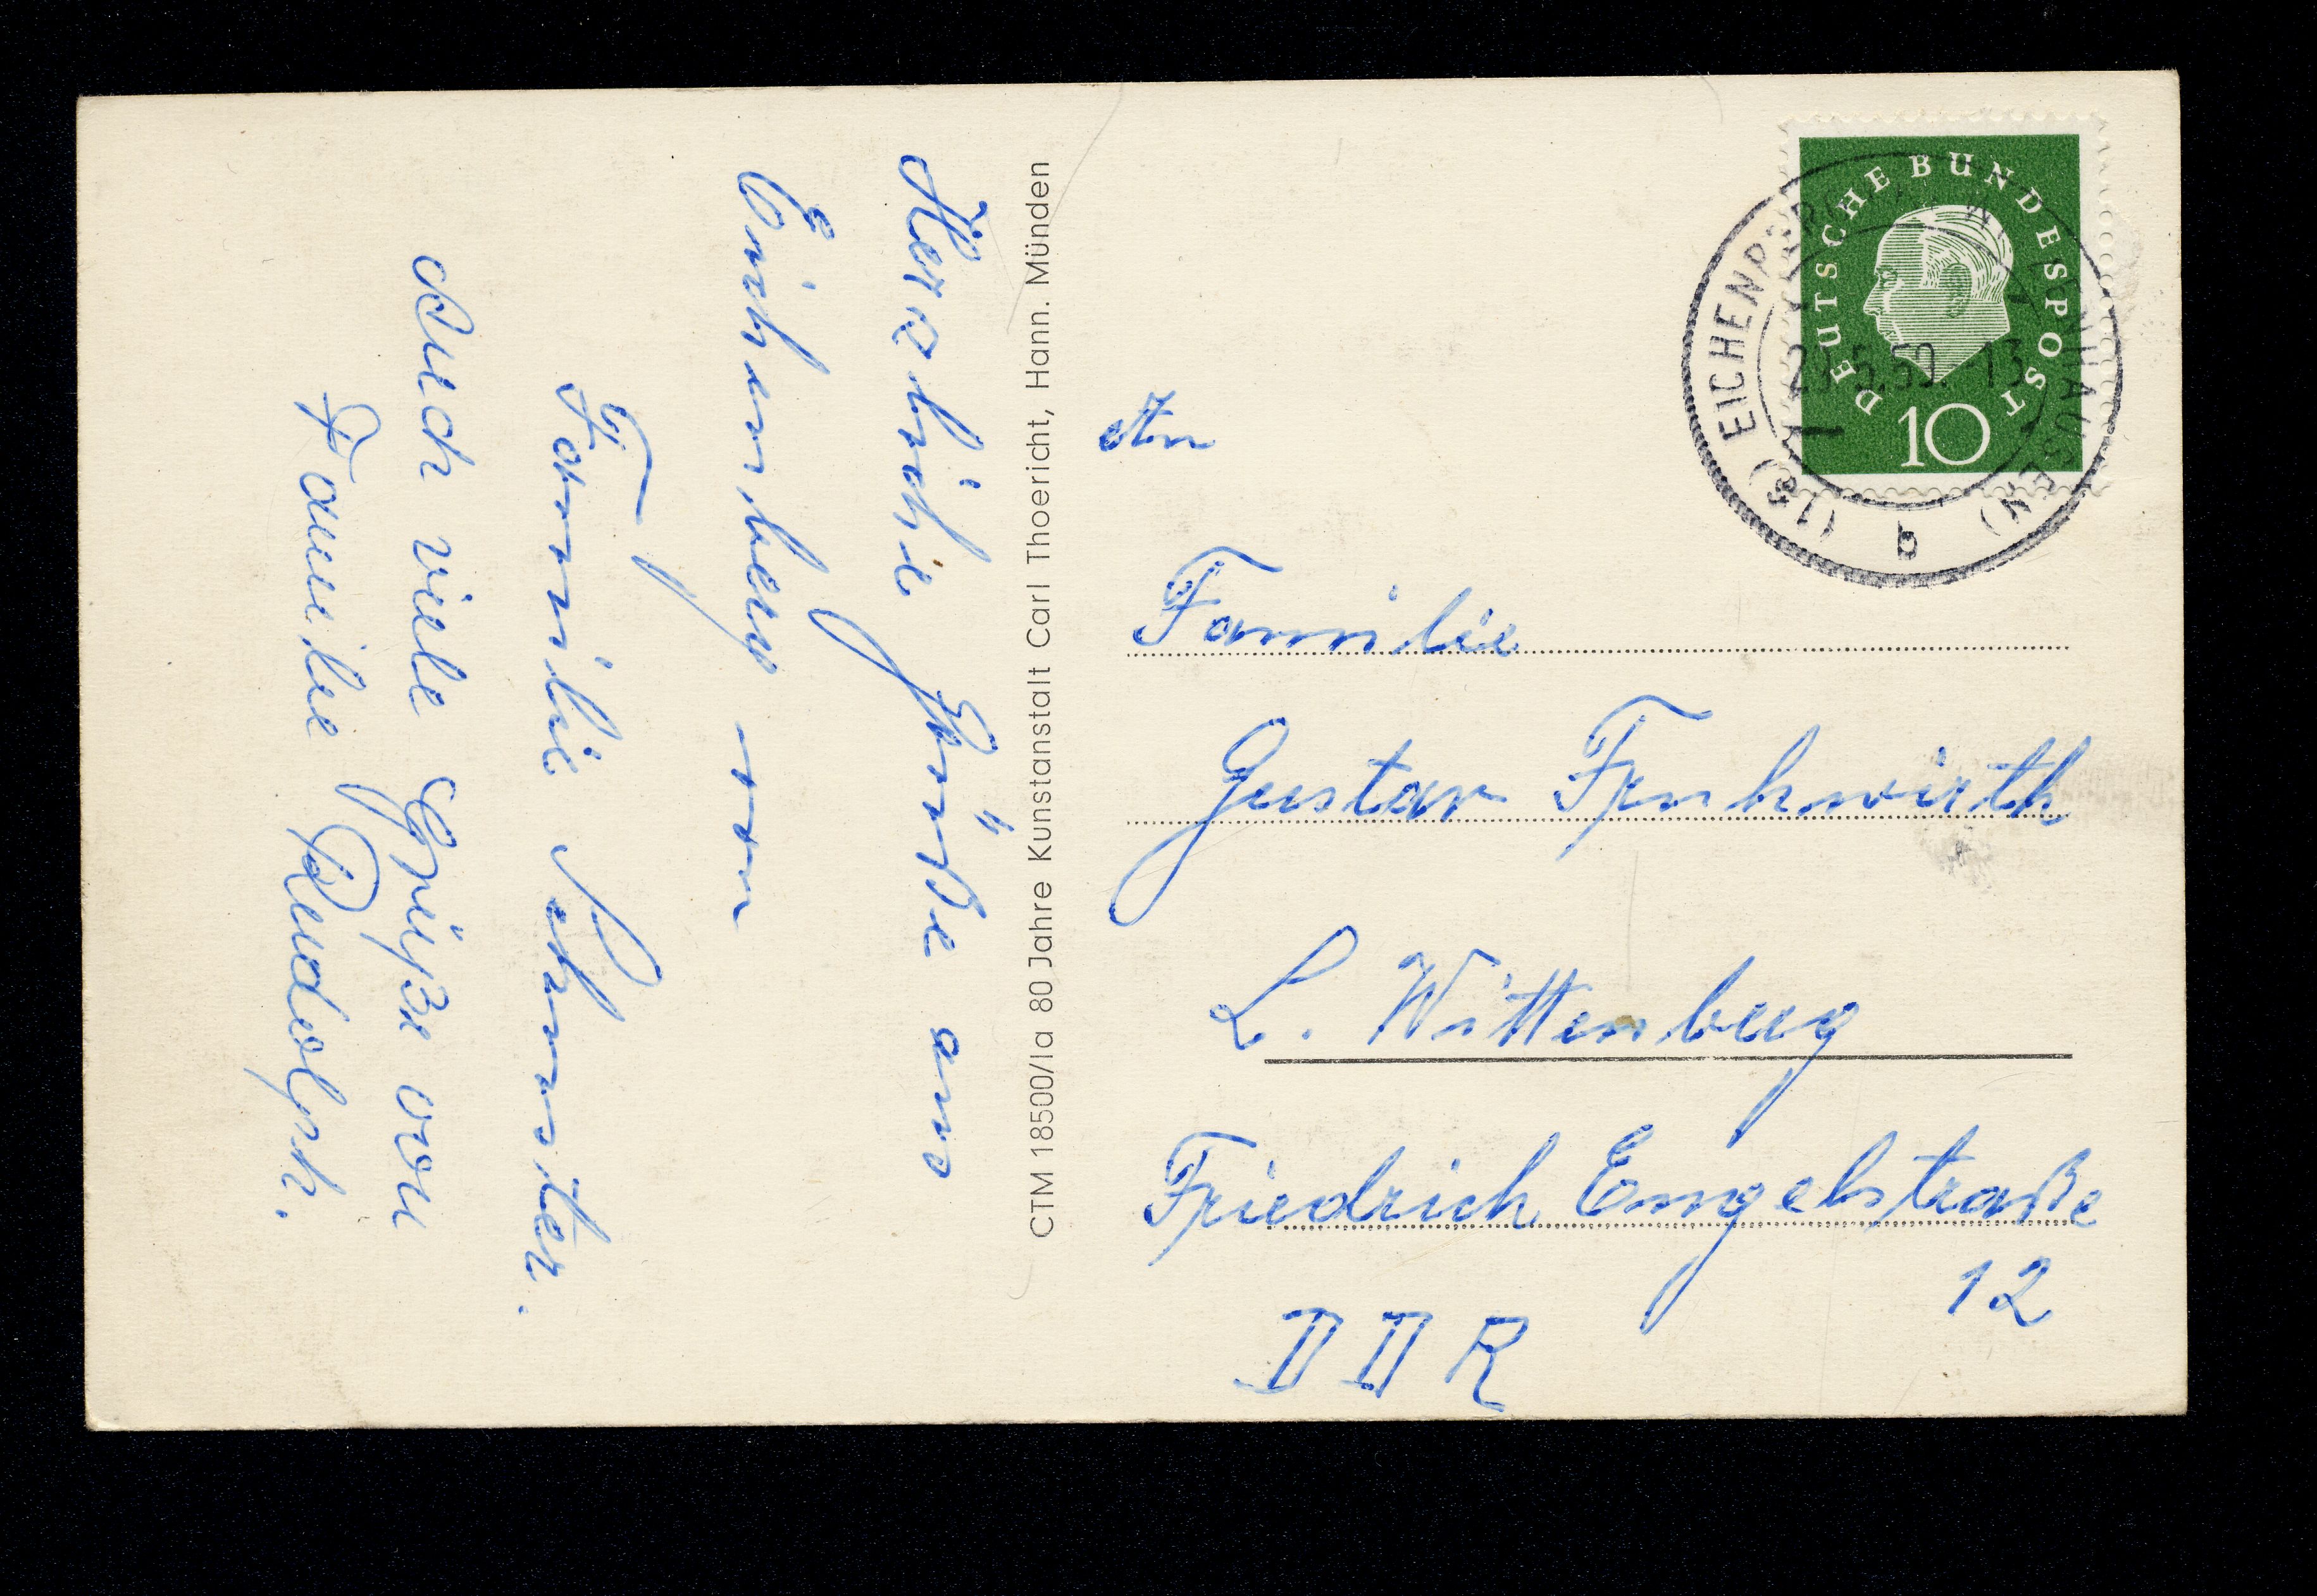 Herzliche Grüße aus
Eichenberg von
Familie Schuster.
Auch viele Grüße von
Familie Rudolph.
CTM 18500/Ia 80 Jahre Kunstanstalt Carl Thoericht, Hann. Münden
DEUTSCHE BUNDESPOST
10
(16) EICHENBERG
.5.59. 13
a
An
Familie
Gustav Fruhwirth
L. Wittenberg
Friedrich Engelstraße
12
DDR